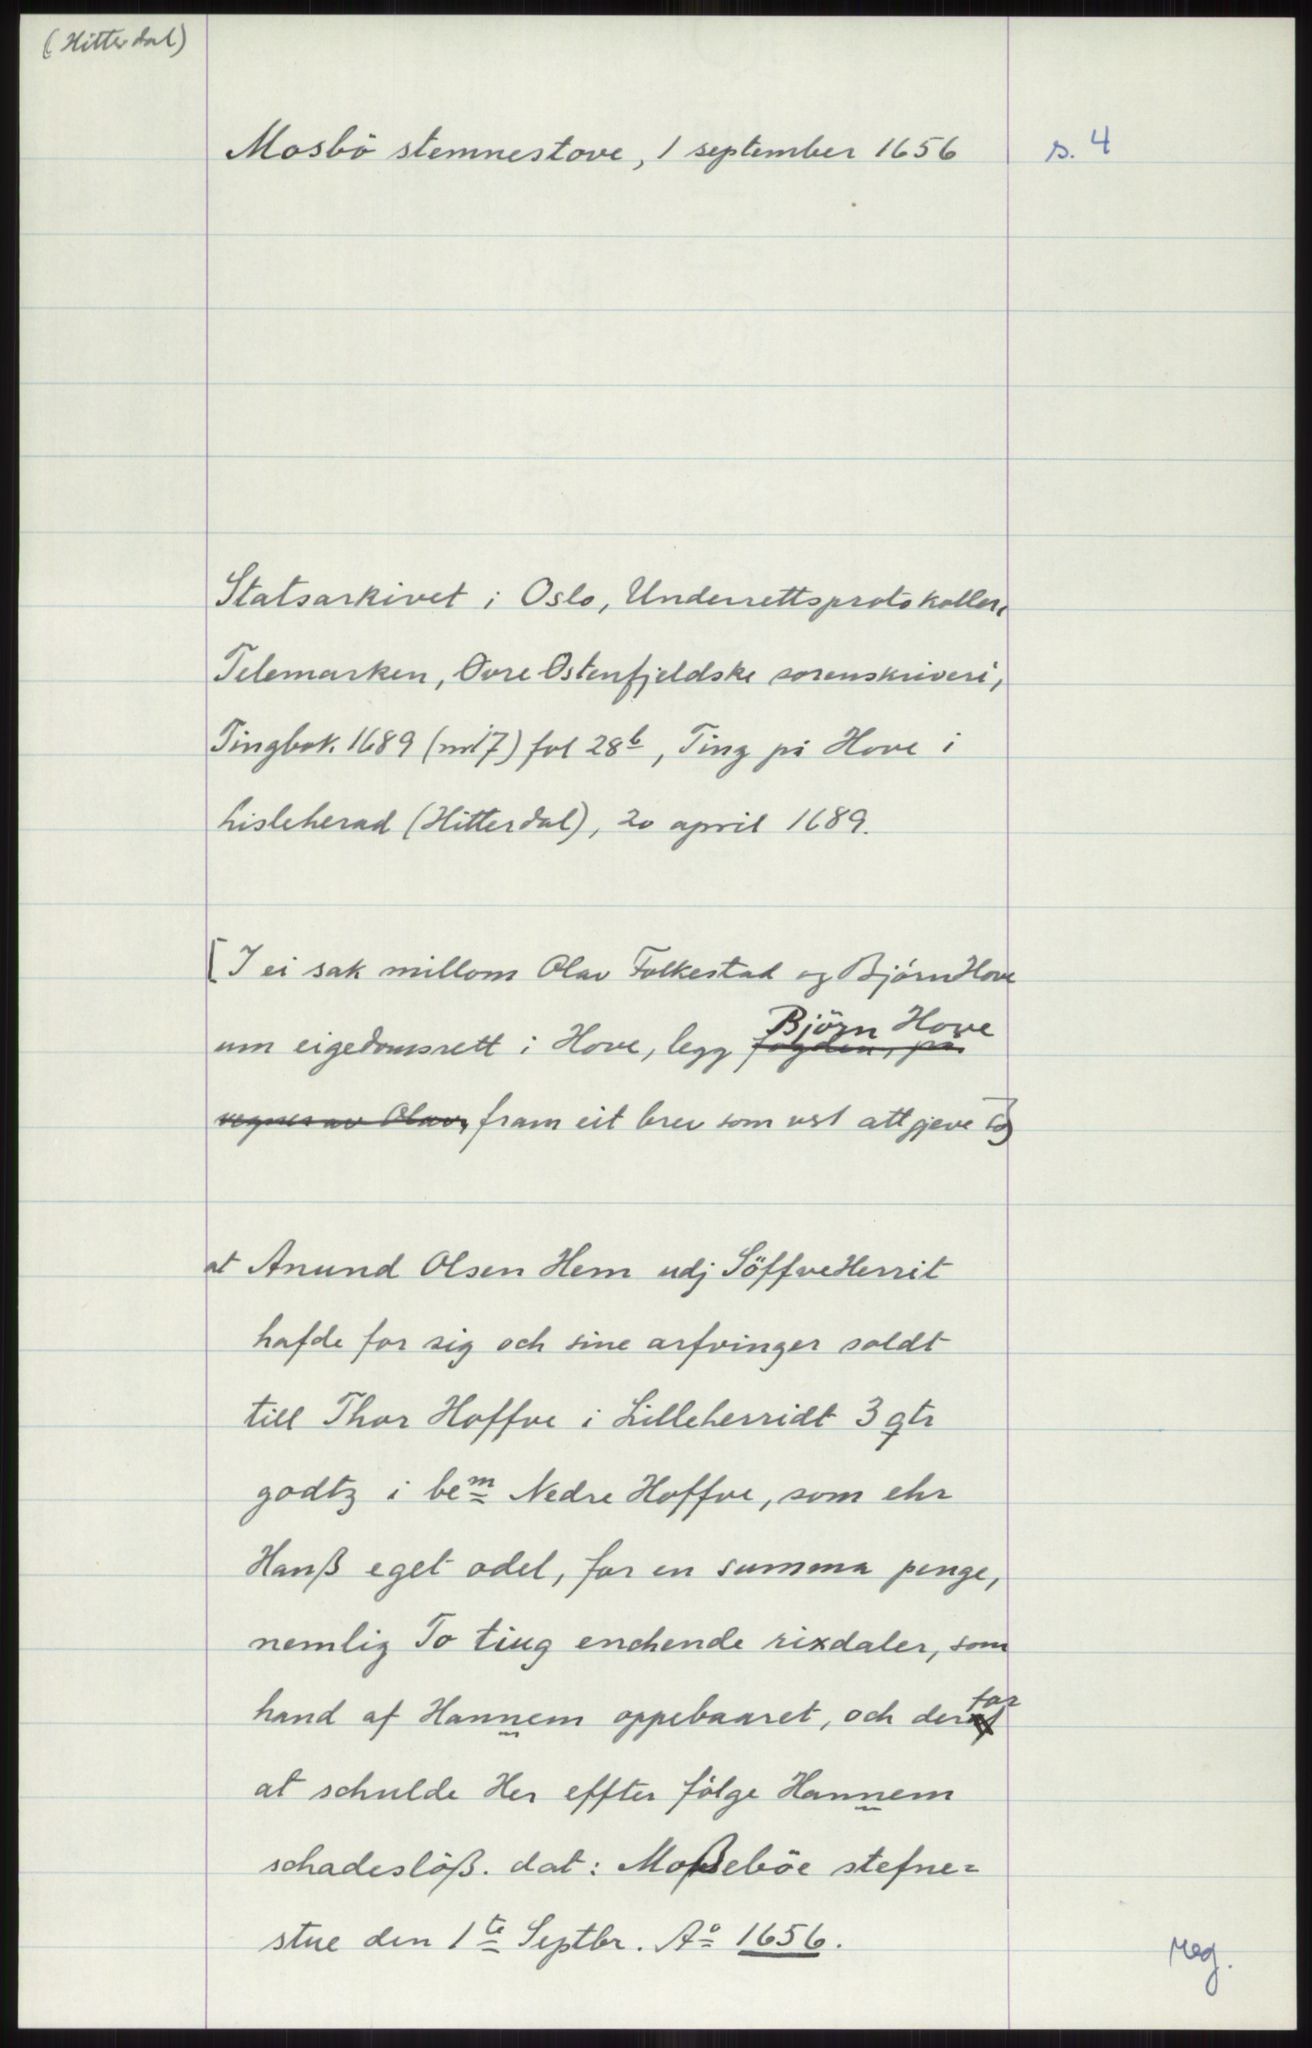 (Hitterdal)
Mosbö stemnestove, 1 september 1656
s. 4
Statsarkivet i Oslo, Underrettsprotokoller,
Telemarken, Øvre Østenfjeldske sorenskriveri,
Tingbok 1689 (nr 17) fol 28b, Ting på Hove i
Lisleherad (Hitterdal), 20 april 1689.
[I ei sak millom Olav Folkestad og Bjørn Hove
um eigedomsrett i Hove, legg fogden, på Björn Hove
vegner av Olav, fram eit brev som vsl attgjeve]
at Anund Olsen Hem udj SöffveHerrit
hafde for sig och sine arfvinger soldt
till Thor Hoffve i Lilleherridt 3 qtr
godtz i bem Nedre Hoffve, som ehr
Hanß eget odel, for en summa penge,
nemlig To tiug enchende rixdaler, som
hand af Hannem oppebaaret, och derfor
at schulde Her effter fölge Hannem
schadeslöß. dat: Moßeböe stefne=
stue den 1te Septbr. Ao 1656.
reg.